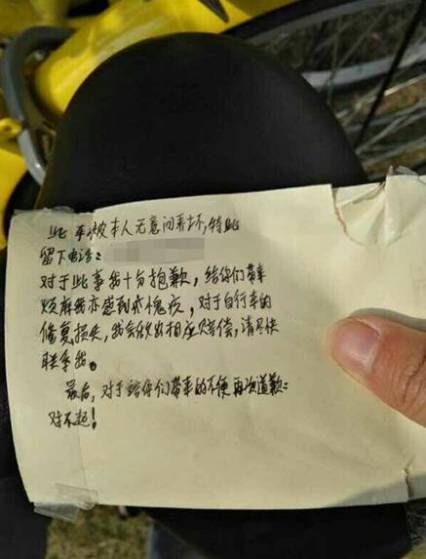 此车被本人无意间弄坏,特此
留下电话:
对于此事我十分抱歉,给你们带来
烦麻我亦感到愧疚,对于自行车的
修复损失,我会做出相应赔偿,请尽快
联系我。
最后,对于给你们带来的不便再次道歉:
对不起!